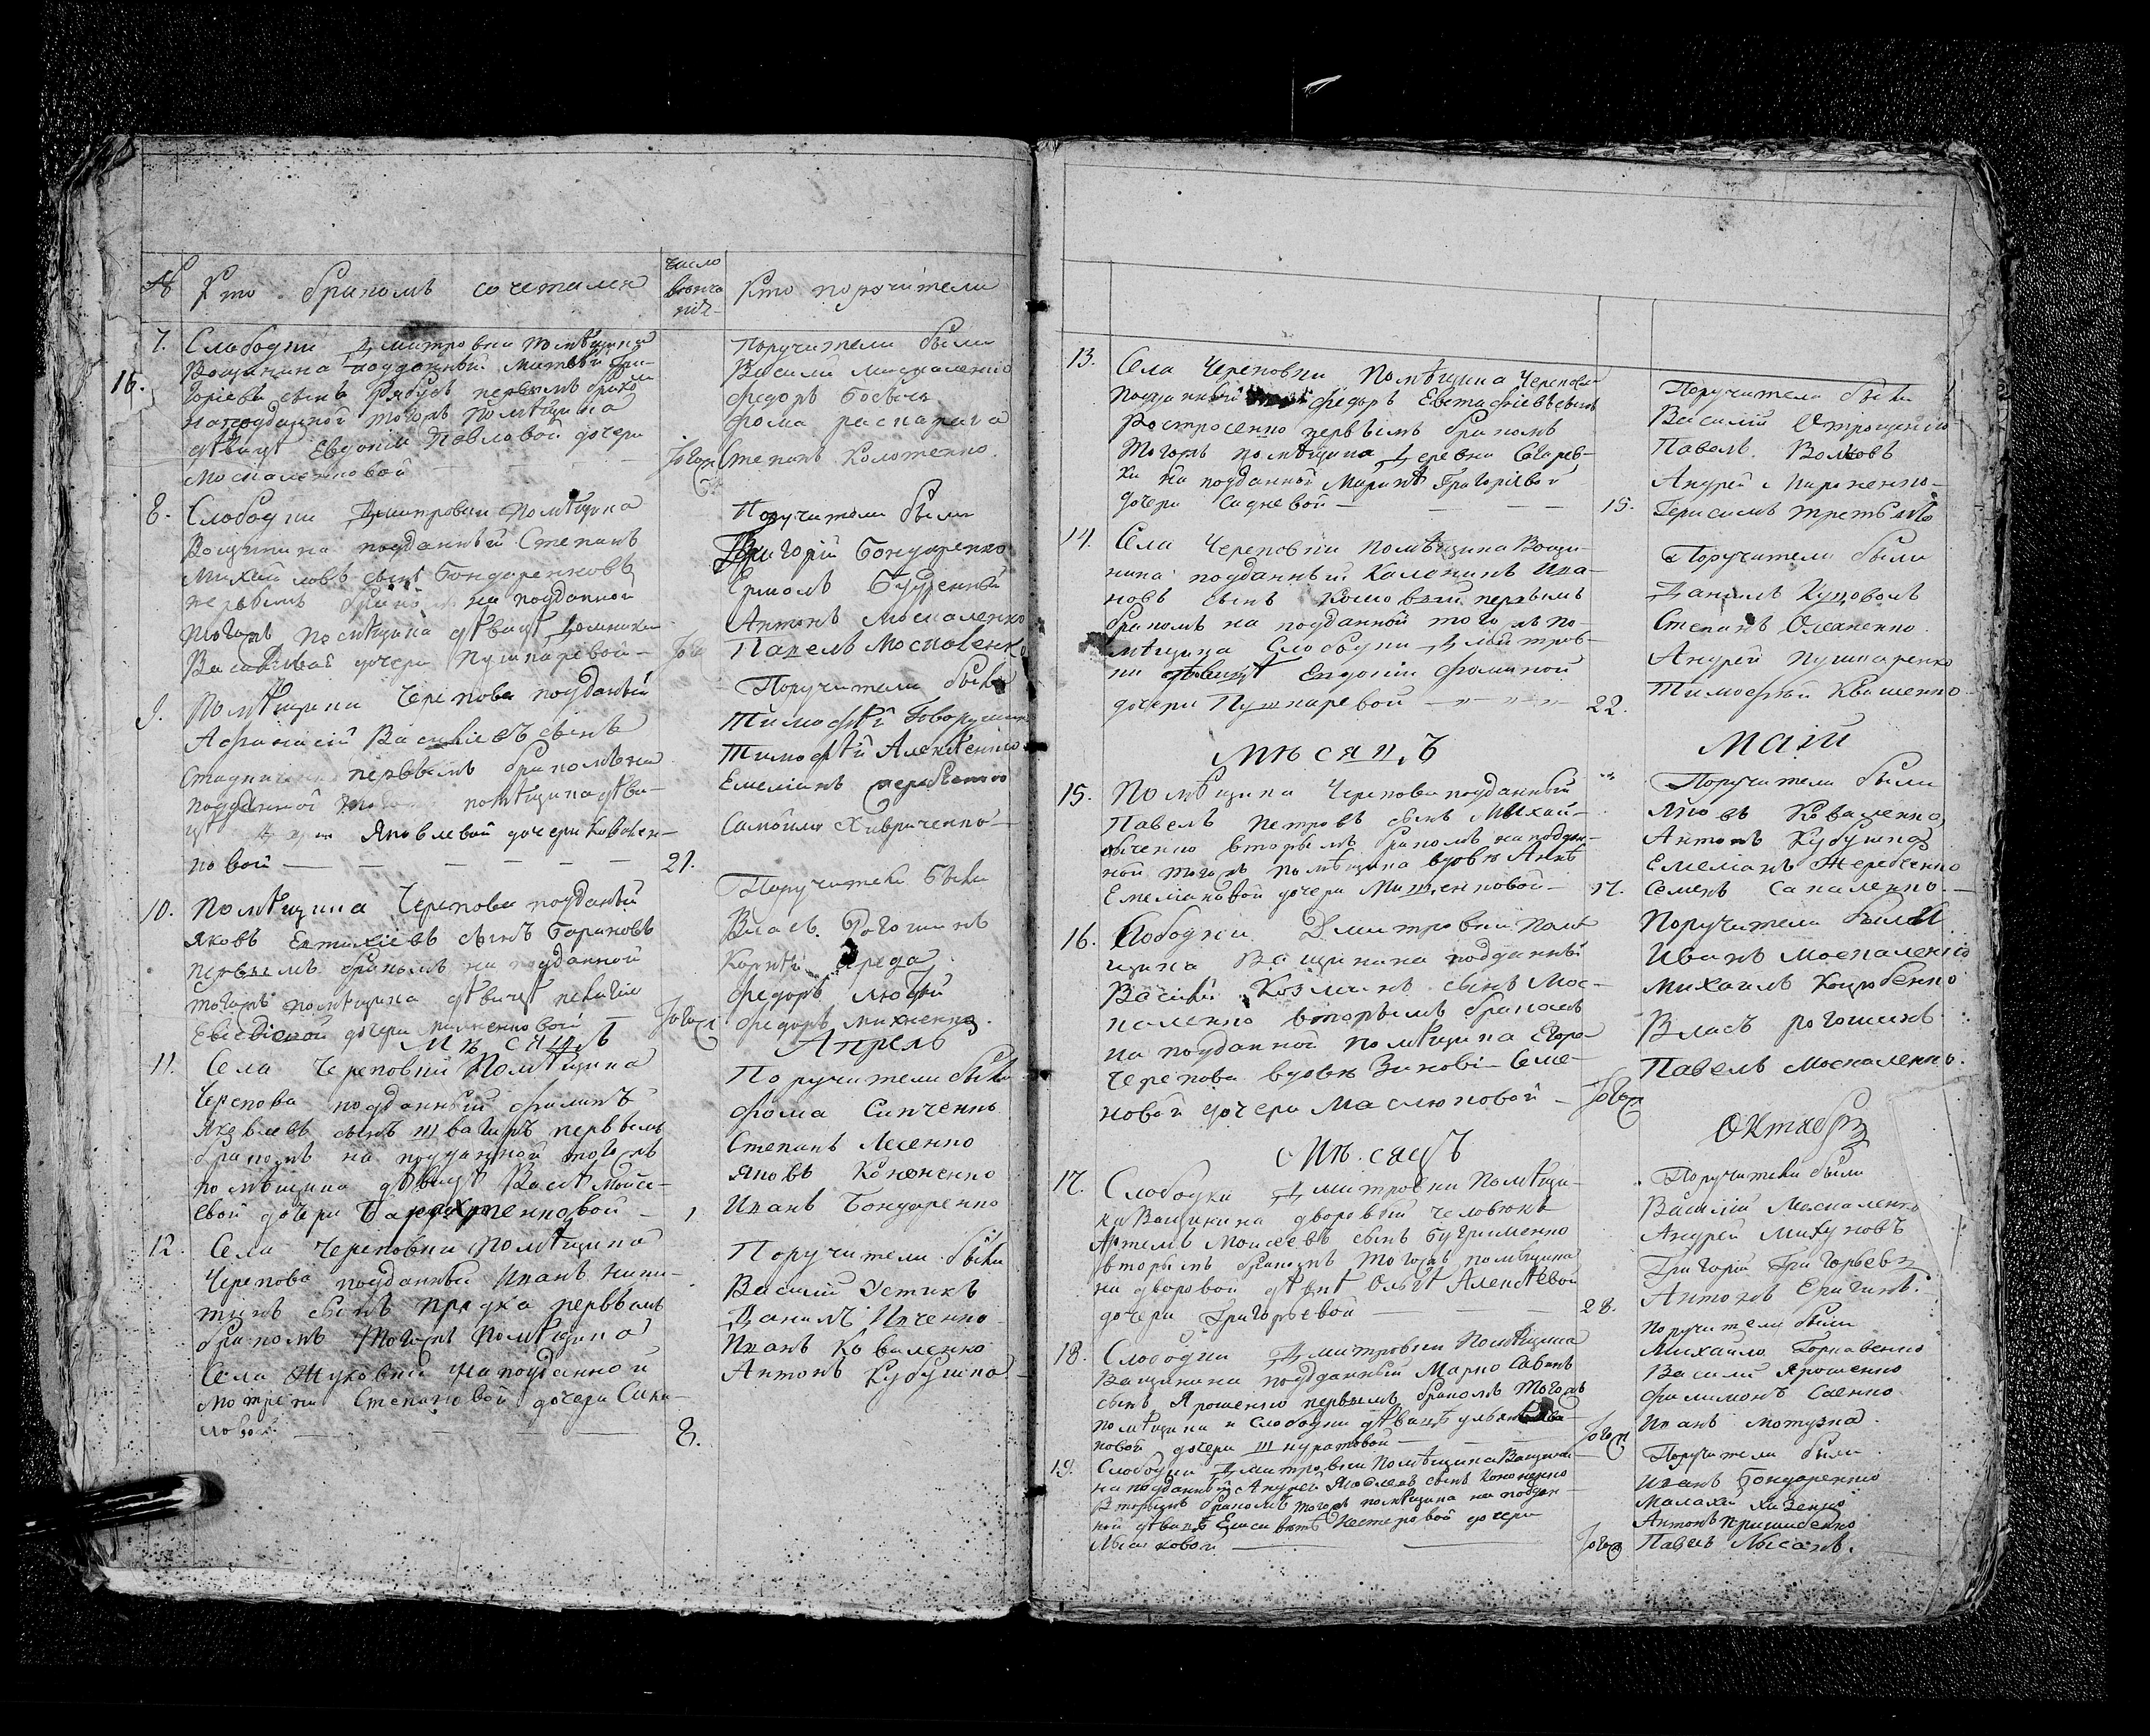 №
Кто бракомъ сочетался
число
венча
нія
Кто поручители
7.
Слободки Дмитровки помѣщика
Вощинина подданный Матвей Гри-
горіевъ сынъ Рябухъ первымъ брако
на подданной тогожъ помѣщика
дѣвицѣ Евдокіи Павловой дочери
Москаленковой
Тогож
Поручители были
Василій Москаленко
Федоръ
Фома
Степанъ Коломенко
16.
8.
Слободки Дмитровки помѣщика
Вощинина подданный Степанъ
Михайловъ сынъ Бондаренковъ
первымъ бракомъ на подданной
тогожъ помѣщика дѣвицѣ Домники
Васильевой дочери Пушкаревой
Поручители были
Григорій Бондаренко
Ермолъ
Антонъ Москаленко
Павелъ Москаленко
9.
Помѣщика Черепова подданный
Афанасій Василіевъ сынъ
первымъ бракомъ на
подданной помѣщика дѣви-
цѣ Яковлевой дочери Ковален-
ковой
21.
Поручители были
Тимофѣй
Тимофѣй Алексѣенко
Емеліанъ Жеребченко
Самойло Хивриченко
10.
Помѣщика Черепова подданый
Яковъ Евтихіевъ сынъ Барановъ
первымъ бракомъ на подданной
тогожъ помѣщика дѣвицѣ Пелагіи
дочери Михненковой
Тогож
Поручители были
Власъ Рогошинъ
Корнѣй Середа
Федоръ Лютый
Федоръ Михненко.
Мѣсяцъ
Апрель
11.
Села Череповки Помѣщика
Черепова подданный Филипъ
Яковлевъ сынъ Швагиръ первымъ
бракомъ на подданной тогожъ
помѣщика дѣвицѣ Васѣ Мойсе-
евой дочери
1
Поручители были
Фома Сипченко
Степанъ Лесенко
Яковъ Кононенко
Иванъ Бондаренко
12.
Села Череповки Помѣщика
Черепова подданный Иванъ Ники-
тинъ сынъ Прядка первымъ
бракомъ тогожъ Помѣщика
Села Жуковки на подданной
Мотрени Степановой дочери Сика-
ловой
8.
Поручители были
Василій Устикъ
Данилъ Ивченко
Иванъ Коваленко
Антонъ Кубушка
13.
Села Череповки Помѣщика Черепова
Подданный Федоръ Евстафіевъ сынъ
Костросенко первымъ бракомъ
тогожъ помѣщика Деревни
на подданной Маринѣ Григоріевой
дочери Садневой
15.
Поручители были
Василій Отрощенко
Павелъ Волковъ
Андрей Пироженко
Герасимъ Третьякъ
14.
Села Череповки Помѣщика Вощи-
нина подданный Каленикъ Ива-
новъ сынъ Кошовый первымъ
бракомъ на подданной тогожъ по-
мѣщика Слободки Дмитров-
ки дѣвицѣ Евдокіи Фоминой
дочери Пушкаревой
22.
Поручители были
Данилъ Куцоволъ
Степанъ
Андрей Пушкаренко
Тимофей Квашенко
Мѣсяцъ
Маій
15.
Помѣщика Черепова подданный
Павелъ Петровъ сынъ Михай-
личенко вторымъ бракомъ на поддан-
ной тогожъ помѣщика вдовѣ Аннѣ
Емеліановой дочери Мишенковой
17.
Поручители были
Яковъ Коваленко
Антонъ Кубушка
Емеліанъ Жеребченко
Семенъ Сакаленко
16.
Слободки Дмитровки Помѣ
щика Вощинина подданный
Василій Козминъ сынъ Мос-
каленко вторымъ бракомъ
на подданной помѣщика Егора
Черепова вдовѣ Зиновіи Семе-
новой дочери Маслюковой
Тогож
Поручители были
Иванъ Москаленко
Михаилъ Коцюбенко
Власъ Рогошинъ
Павелъ Москаленко.
Мѣсяцъ
Октябрь
17.
Слободки Дмитровки Помѣщи-
ка Вощинина дворовый человѣкъ
Артемъ Моисеевъ сынъ Бугрименко
вторымъ бракомъ тогожъ помѣщика
на дворовой дѣвкѣ Ольгѣ Алексѣевой
дочери Григорьевой
28.
Поручители были
Василій Москаленко
Андрей Микуновъ
Григорій Григорьевъ
Антонъ Еригинъ.
18.
Слободки Дмитровки Помѣщика
Вощинина подданный Марко Савинъ
сынъ Ярошенко первымъ бракомъ тогожъ
помѣщика и Слободки дѣвицѣ Ульянѣ
новой дочери Шкуратовой
Тогож
Поручители были
Михайло Горковенко
Василій Ярошенко
Филимонъ Саенко
Иванъ Мотузка.
19.
Слободки Дмитровки Помѣщика Вощини-
на подданный Андрей Яковлевъ сынъ Кононенко
Вторымъ бракомъ тогожъ помѣщика на поддан-
ной дѣвицѣ Елисаветѣ Нестеровой дочери
Лысаковой
Тогож
Поручители были
Иванъ Бондаренко
Малахій Хиженко
Антонъ Пришибенко
Павелъ Лысакъ.